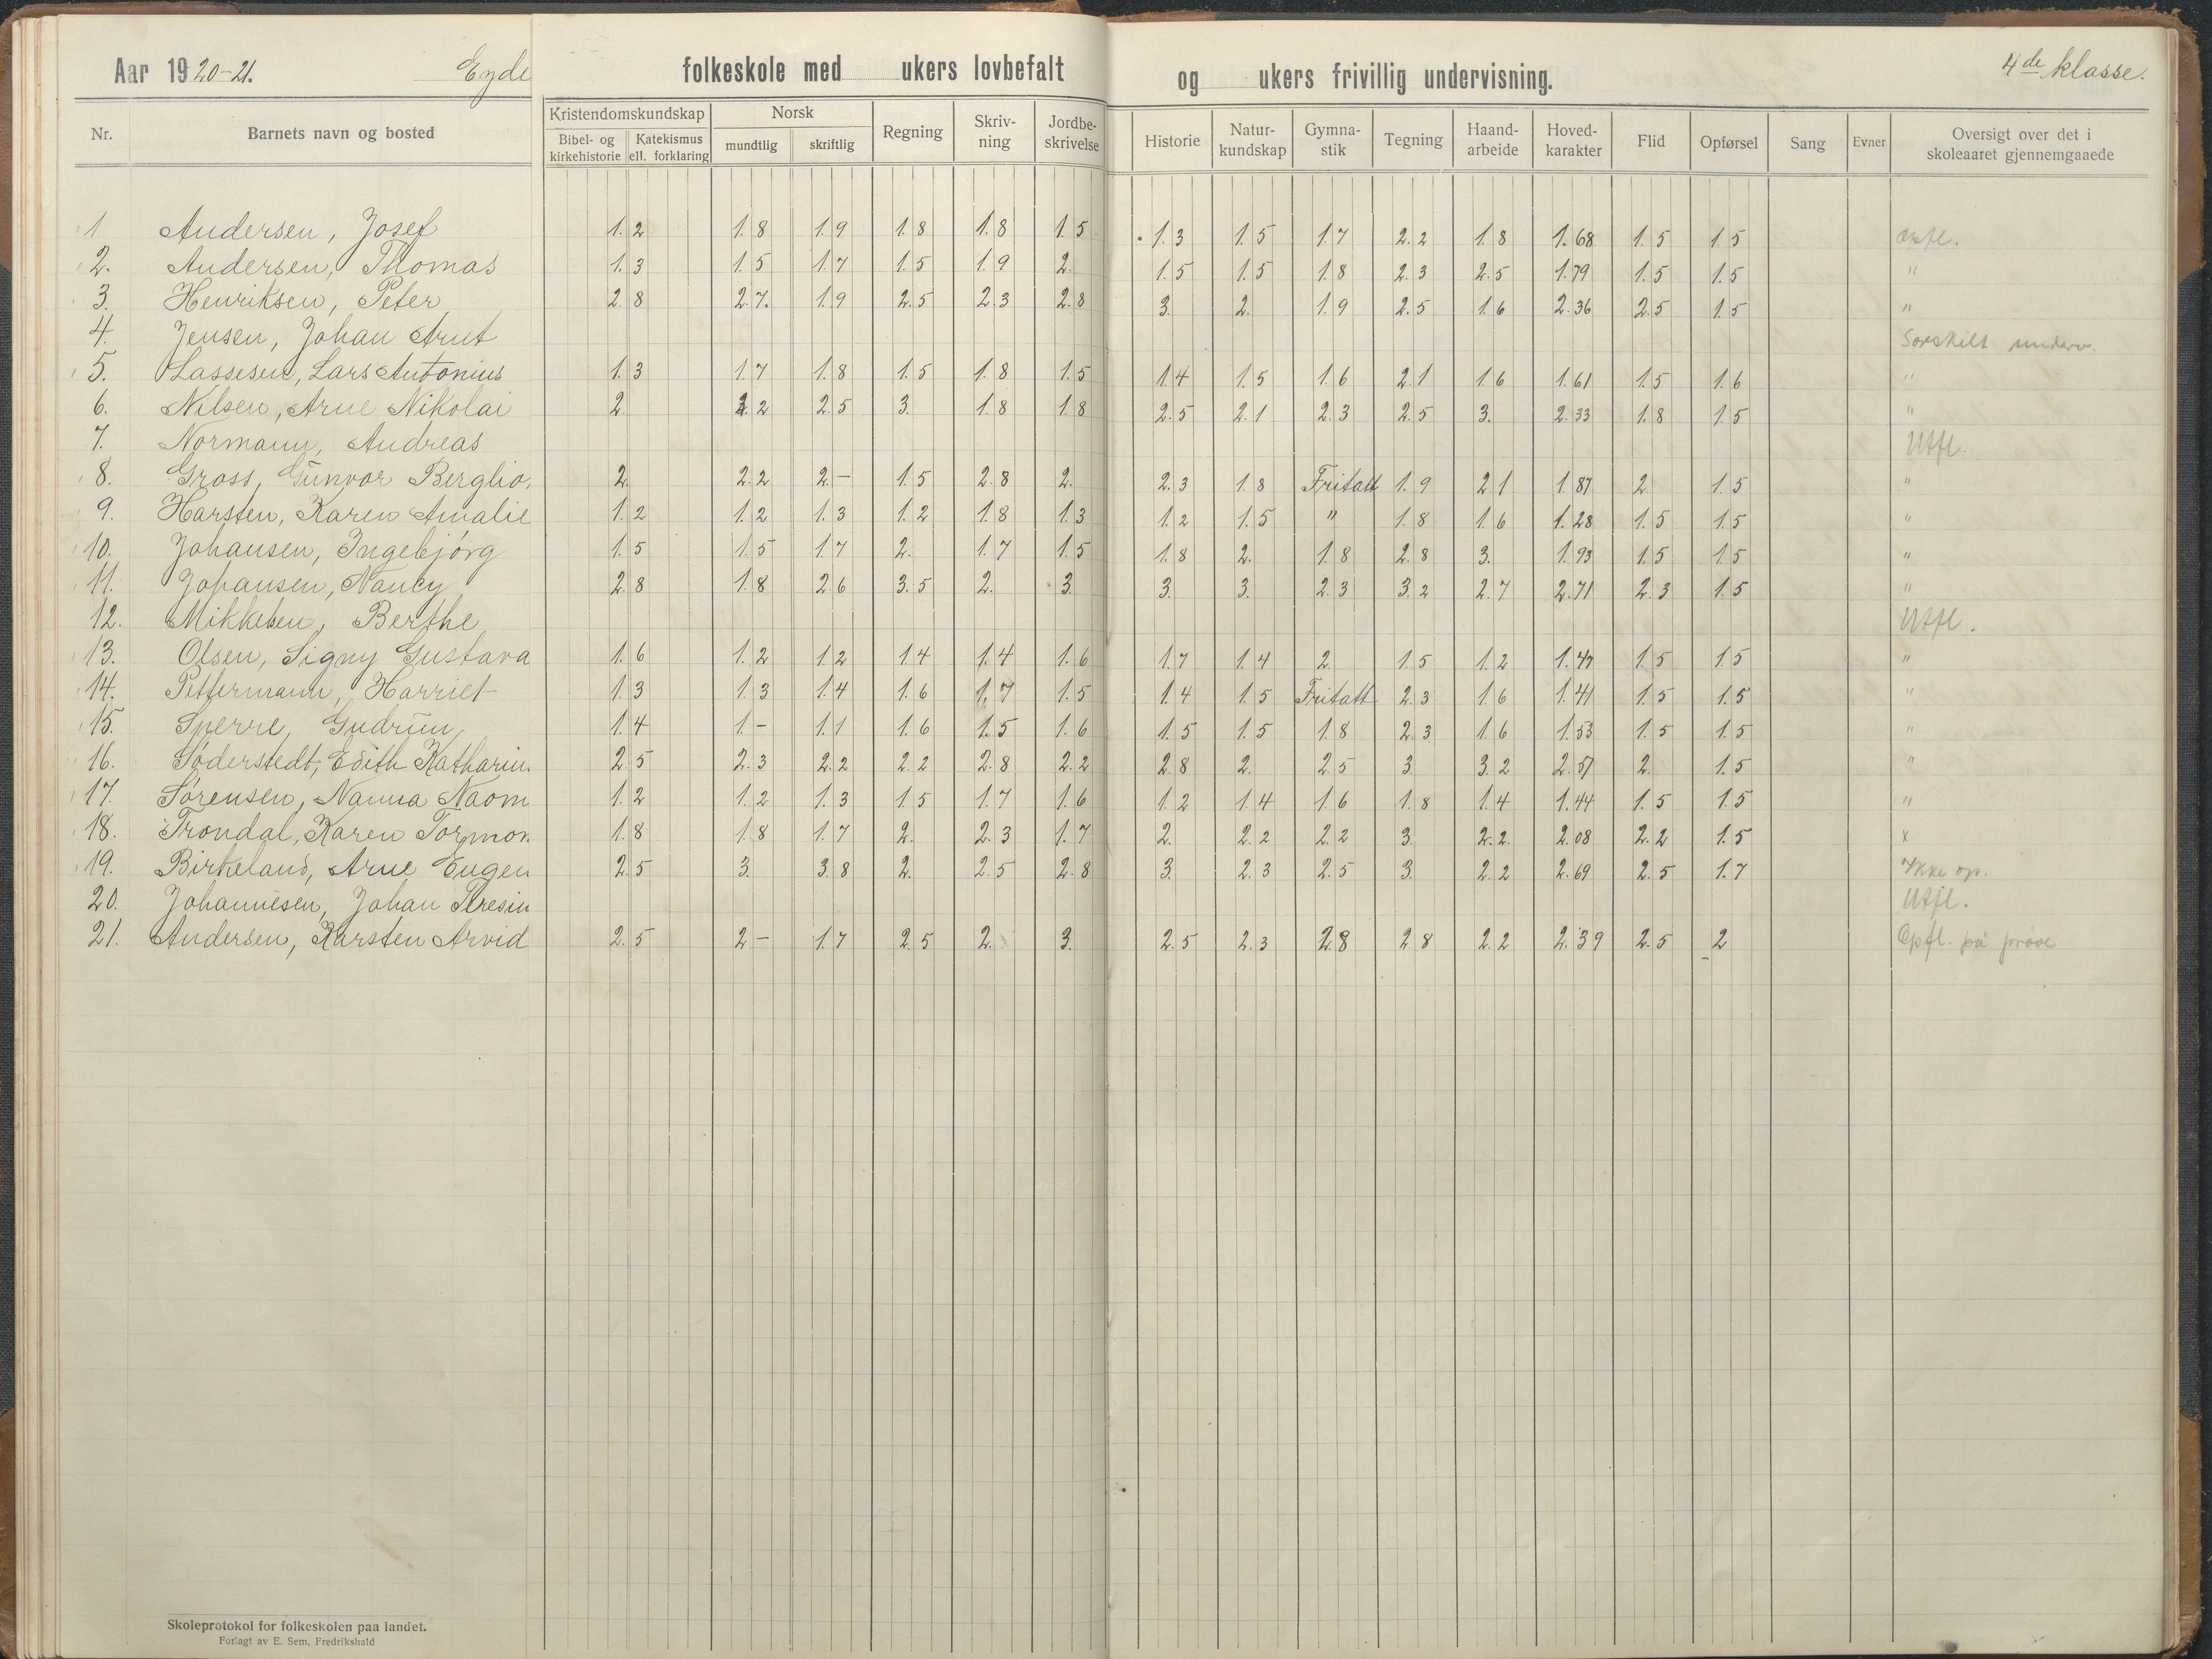 Aar 1920-21. Eyde folkeskole med ukers lovbefalt og ukers frivillig undervisning. 4de klasse.
Nr. Barnets navn og bosted Kristendomskundskap Bibel- og kirkehistorie Katekismus ell. forklaring Norsk mundtlig skriftlig Regning Skriv- ning Jordbe- skrivelse Historie Natur- kundskap Gymna- stik Tegning Haand- arbeide Hoved- karakter Flid Opførsel Sang Evner Oversigt over det i skoleaaret gjennemgaaede
1. Andersen, Josef 1.2 1.8 1.9 1.8 1.8 1.5 1.3 1.5 1.7 2.2 1.8 1.68 1.5 1.5 Opfl.
2. Andersen, Thomas 1.3 1.5 1.7 1.5 1.9 2. 1.5 1.5 1.8 2.3 2.5 1.79 1.5 1.5 "
3. Henriksen, Peter 2.8 2.7. 1.9 2.5 2.3 2.8 3. 2. 1.9 2.5 1.6 2.36 2.5 1.5 "
4. Jensen, Johan Arnt Særskilt underv.
5. Lassesen, Lars Antonius 1.3 1.7 1.8 1.5 1.8 1.5 1.4 1.5 1.6 2.1 1.6 1.61 1.5 1.6 "
6. Nilsen, Arne Nikolai 2. 2.2 2.5 3. 1.8 1.8 2.5 2.1 2.3 2.5 3. 2.33 1.8 1.5 "
7. Normann, Andreas Utfl.
8. Gross, Gunvor Berglio. 2. 2.2 2.- 1.5 2.8 2. 2.3 1.8 Fritatt 1.9 2.1 1.87 2 1.5 "
9. Harsten, Karen Amalie 1.2 1.2 1.3 1.2 1.8 1.3 1.2 1.5 " 1.8 1.6 1.28 1.5 1.5 "
10. Johansen, Ingebjörg 1.5 1.5 1.7 2. 1.7 1.5 1.8 2. 1.8 2.8 3. 1.93 1.5 1.5 "
11. Johansen, Nancy 2.8 1.8 2.6 3.5 2. 3. 3. 3. 2.3 3.2 2.7 2.71 2.3 1.5 "
12. Mikkelsen, Berthe Utfl.
13. Olsen, Signy Gustava 1.6 1.2 1.2 1.4 1.4 1.6 1.7 1.4 2. 1.5 1.2 1.47 1.5 1.5 "
14. Pettermann, Harriet 1.3 1.3 1.4 1.6 1.7 1.5 1.4 1.5 Fritatt 2.3 1.6 1.41 1.5 1.5 "
15. Sperre, Gudrun 1.4 1.- 1.1 1.6 1.5 1.6 1.5 1.5 1.8 2.3 1.6 1.53 1.5 1.5 "
16. Söderstedt, Edith Katharin. 2.5 2.3 2.2 2.2 2.8 2.2 2.8 2. 2.5 3. 3.2 2.57 2. 1.5 "
17. Sörensen, Nanna Naom 1.2 1.2 1.3 1.5 1.7 1.6 1.2 1.4 1.6 1.8 1.4 1.44 1.5 1.5 "
18. Trondal, Karen Tormon. 1.8 1.8 1.7 2. 2.3 1.7 2. 2.2 2.2 3. 2.2. 2.08 2.2 1.5 x
19. Birkeland, Arne Eugen 2.5 3. 3.8 2. 2.5 2.8 3. 2.3 2.5 3. 2.2 2.69 2.5 1.7 Ikke op.
20. Johannesen, Johan Utfl.
21. Andersen, Karsten Arvid 2.5 2- 1.7 2.5 2. 3. 2.5 2.3 2.8 2.8 2.2 2.39 2.5 2 Opfl. på prøve
Skoleprotokol for folkeskolen paa landet.
Forlagt av E. Sem, Fredrikshald